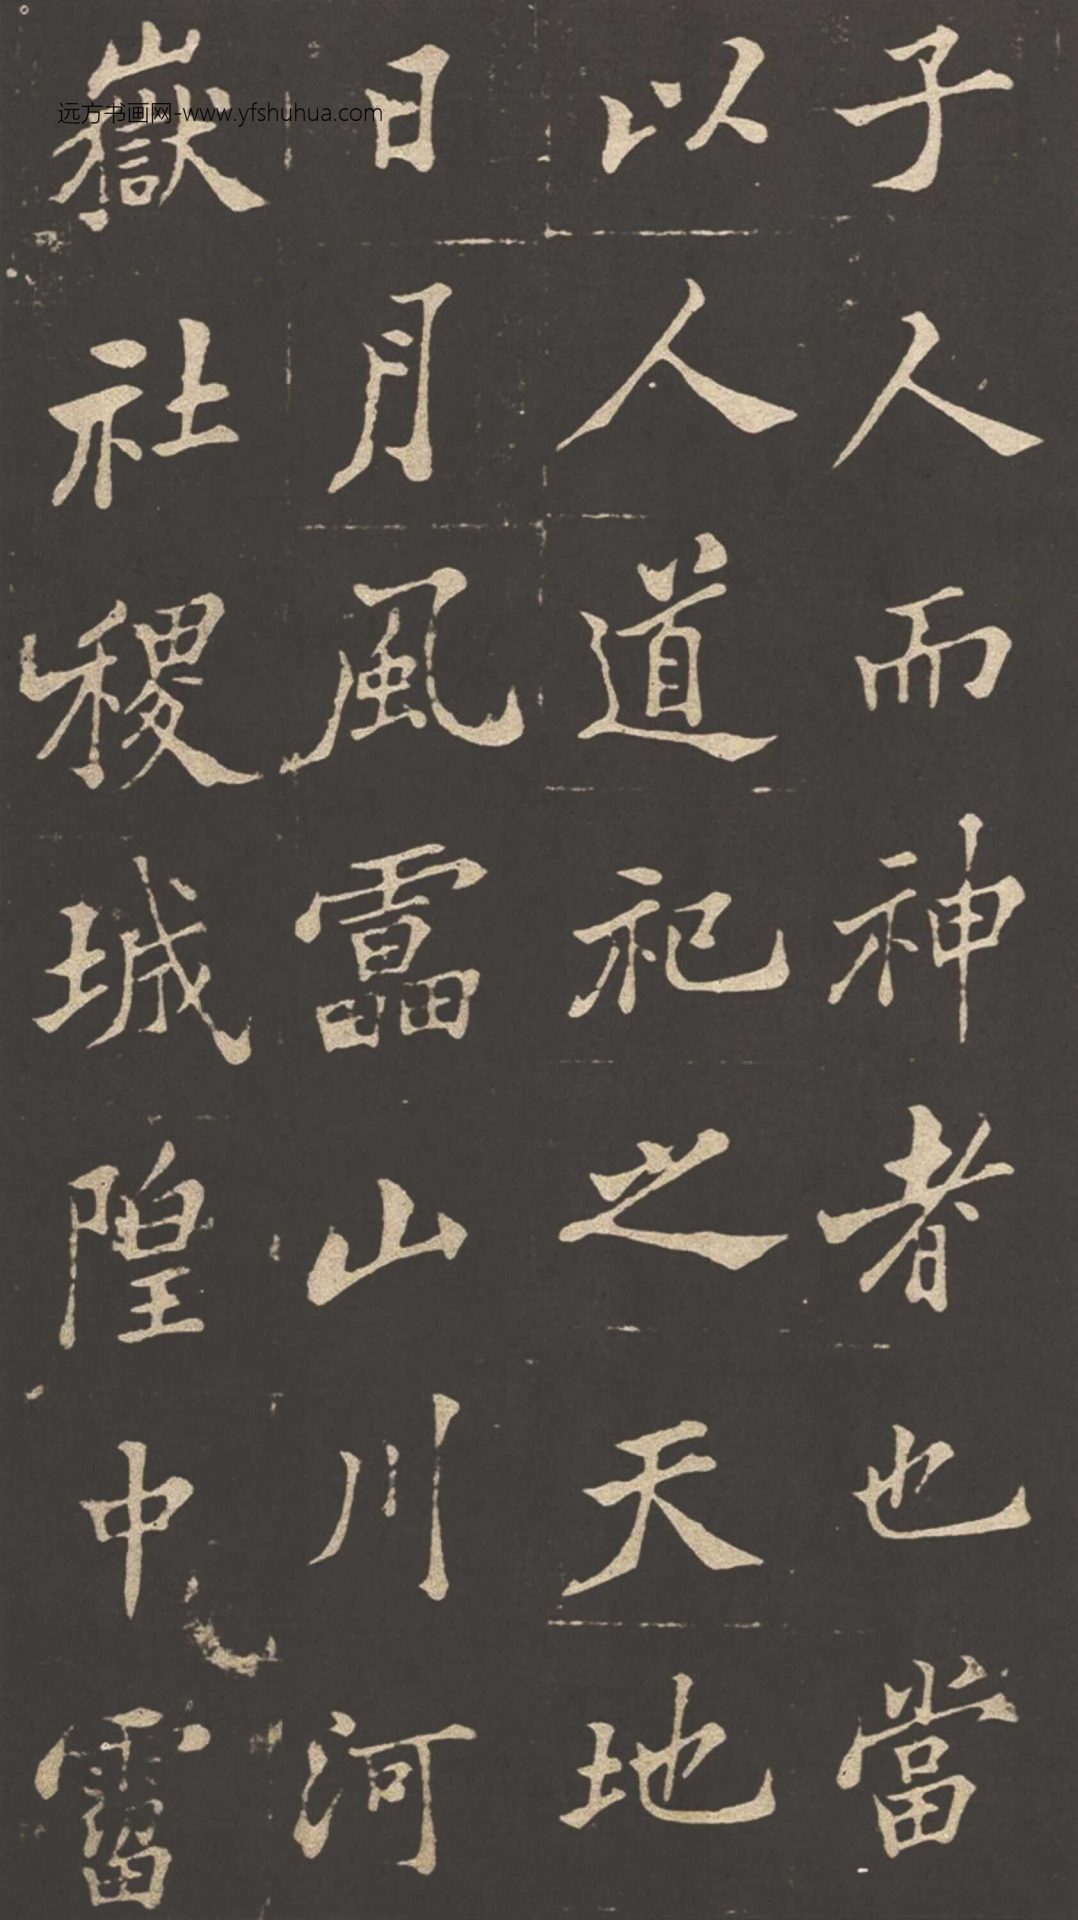 子人而神者也當
以人道祀之天地
日月風靁山川河
嶽社稷城隍中霤
远方书画网-www.yfshuhua.com